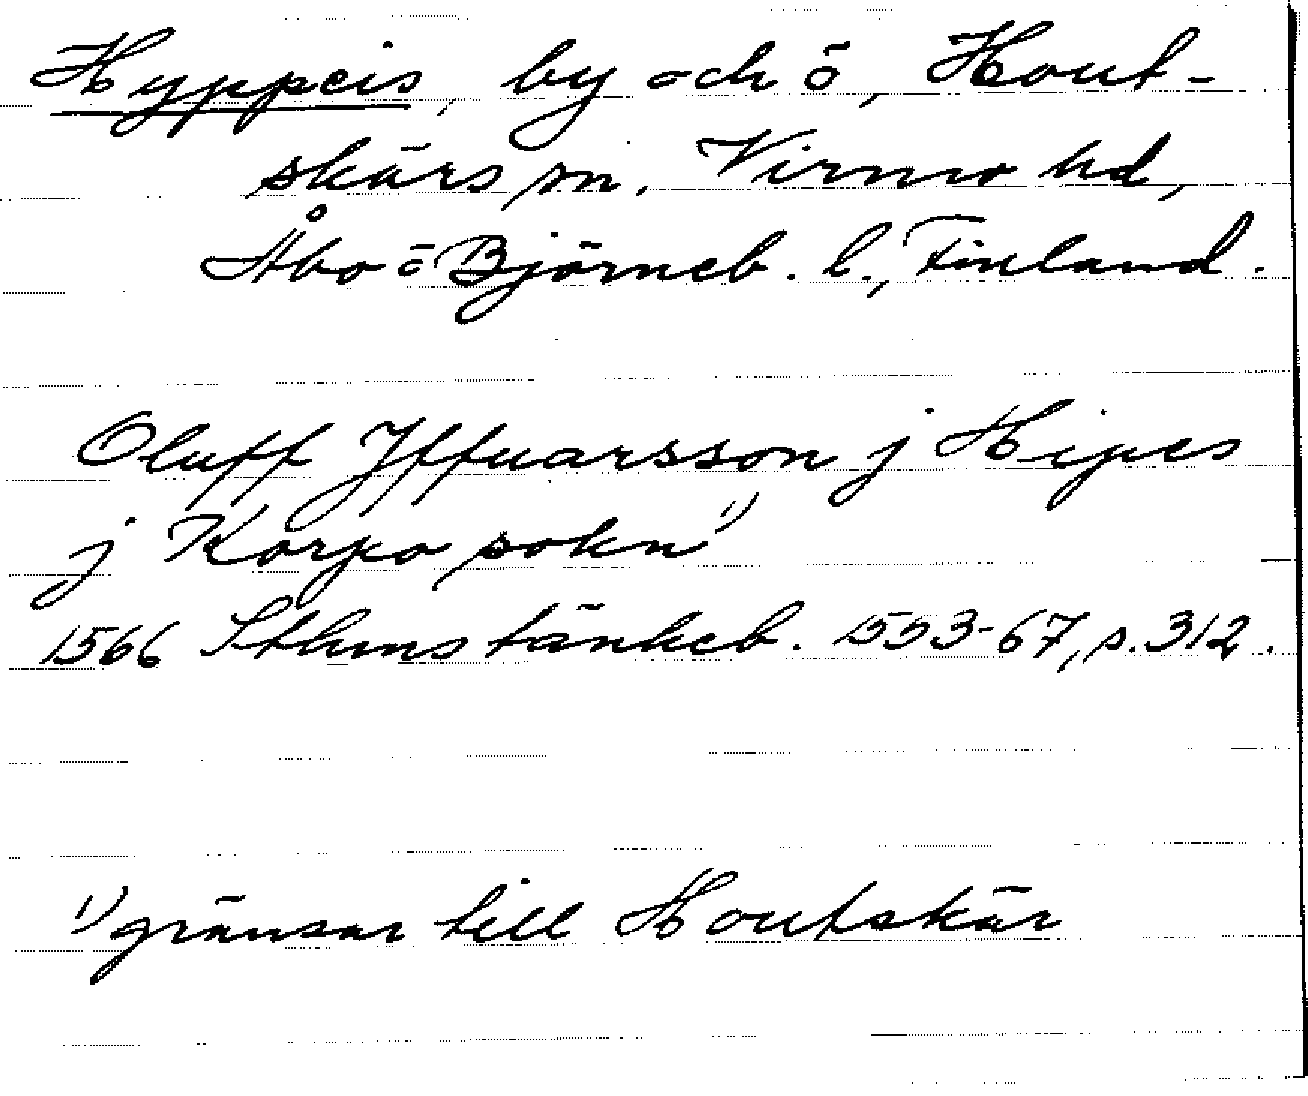 Hyppeis, by och ö, Hout-
skärs sn. Virmo hd,
Åbo o Björneb. l., Finland.
Oluff Jffuarsson j Hipes
j Korpo sokn 1)
1566 Sthms tänkeb. 1553-67, s. 312.
1) gränsar till Houtskär